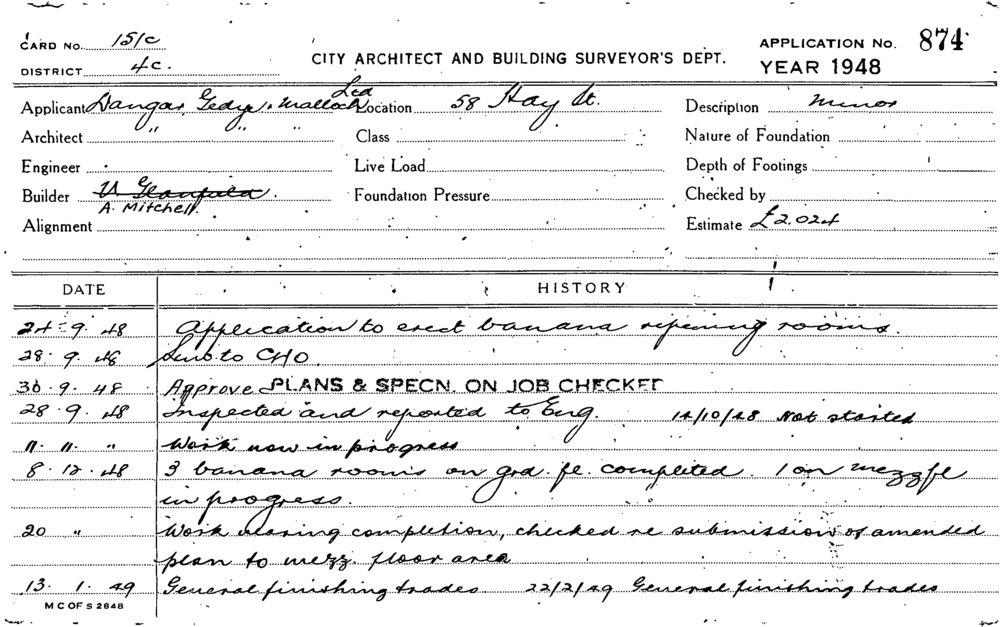 CARD NO. 151C
DISTRICT 4C.
CITY ARCHITECT AND BUILDING SURVEYOR'S DEPT.
APPLICATION NO. 874
YEAR 1948
Applicant Dangar, Gedye & Malloch Ltd Location 58 Hay St. Description Minor
Architect " " " Class Nature of Foundation
Engineer Live Load Depth of Footings
Builder Foundation Pressure Checked by
A. Mitchell.
Alignment Estimate £2,024
DATE HISTORY
24-9.48 Application to erect banana ripening rooms.
28.9.48 Sent to CHO
30.9.48 Approve PLANS & SPECN. ON JOB CHECKED
28.9.48 Inspected and reported to Eng. 14/10/48 Not started
11.11. " Work now in progress
8.12.48 3 banana rooms on grd. fl. completed. 1 on mezz fl
in progress.
20 " Work nearing completion, checked re submission of amended
plan to mezz. floor area
13.1.49 General finishing trades 22/2/49 General finishing trades
M C OF S 2648